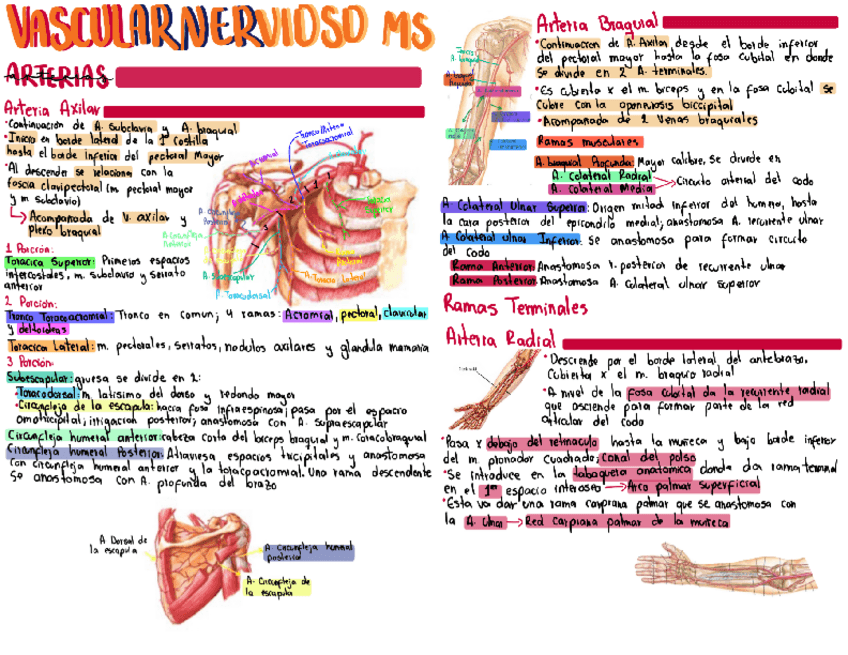 VASCULARNERVIOSO MS
ARTERIAS
Arteria Axilar
•Continuación de A. Subclavia y A. braquial
•Inicio en borde lateral de la 1º costilla
hasta el borde inferior del pectoral mayor
•Al descender se relaciona con la
fascia clavipectoral (m pectoral mayor
y m subclavio)
↳ Acompañada de v. axilar y
plexo braquial
1 Porción:
Toracica Superior: Primeros espacios
intercostales, m. subclavio y serrato
anterior
2 Porción:
Tronco Toracoacromial: Tronco en común; 4 ramas: Acromial, pectoral, clavicular
y deltoideas
Toracica Lateral: m. pectorales, serratos, nodulos axilares y glandula mamaria
3 Porción:
Subescapular: gruesa se divide en 2:
•Toracodorsal: m. latisimo del dorso y redondo mayor
•Circunfleja de la escapula: hacia fosa infraespinosa; pasa por el espacio
omotricipital; irrigación posterior; anastomosa con A. Supraescapular
Circunfleja humeral anterior: cabeza corta del biceps braquial y m. coracobraquial
Circunfleja humeral Posterior: Atraviesa espacios tricipitales y anastomosa
con circunfleja humeral anterior y la toracoacromial. Una rama descendente
se anastomosa con A. profunda del brazo
Tronco
Toracoacromial
Acromial
Deltoidea
Superior
A Circunfleja
Posterior
A Circunfleja
A Subescapular
A Toracodorsal
A Toracica Lateral
1
2
3
A Dorsal de
la escapula
A Circunfleja humeral
posterior
A. Circunfleja de
la escapula
Arteria Braquial
•Continuación de A. Axilar desde el borde inferior
del pectoral mayor hasta la fosa cubital en donde
se divide en 2 A. terminales.
•Es cubierta x el m biceps y en la fosa cubital se
cubre con la aponeurosis biccipital
•Acompañada de 2 venas braquiales
Ramas musculares
A. braquial Profunda: Mayor calibre, se divide en
A. Colateral Radial
A. Colateral Media → Circuito arterial del codo
A Colateral Ulnar Superior: Origen mitad inferior del humero, hasta
la cara posterior del epicondilo medial; anastomosa A. recurrente ulnar
A Colateral Ulnar Inferior: Se anastomosa para formar circuito
del codo
Rama Anterior: Anastomosa r. posterior de recurrente ulnar
Rama Posterior: Anastomosa A. colateral ulnar superior
Ramas Terminales
Arteria Radial
•Desciende por el borde lateral del antebrazo.
Cubierta x el m. braquio radial
•A nivel de la fosa cubital da la recurrente radial
que asciende para formar parte de la red
articular del codo
•Pasa x debajo del retinaculo hasta la muñeca y bajo borde inferior
del m. pronador cuadrado; Canal del pulso
•Se introduce en la tabaquera anatomica donde da rama terminal
en el 1er espacio interoseo → Arco palmar superficial
•Esta va dar una rama carpiana palmar que se anastomosa con
la A. Ulnar → Red Carpiana palmar de la muñeca